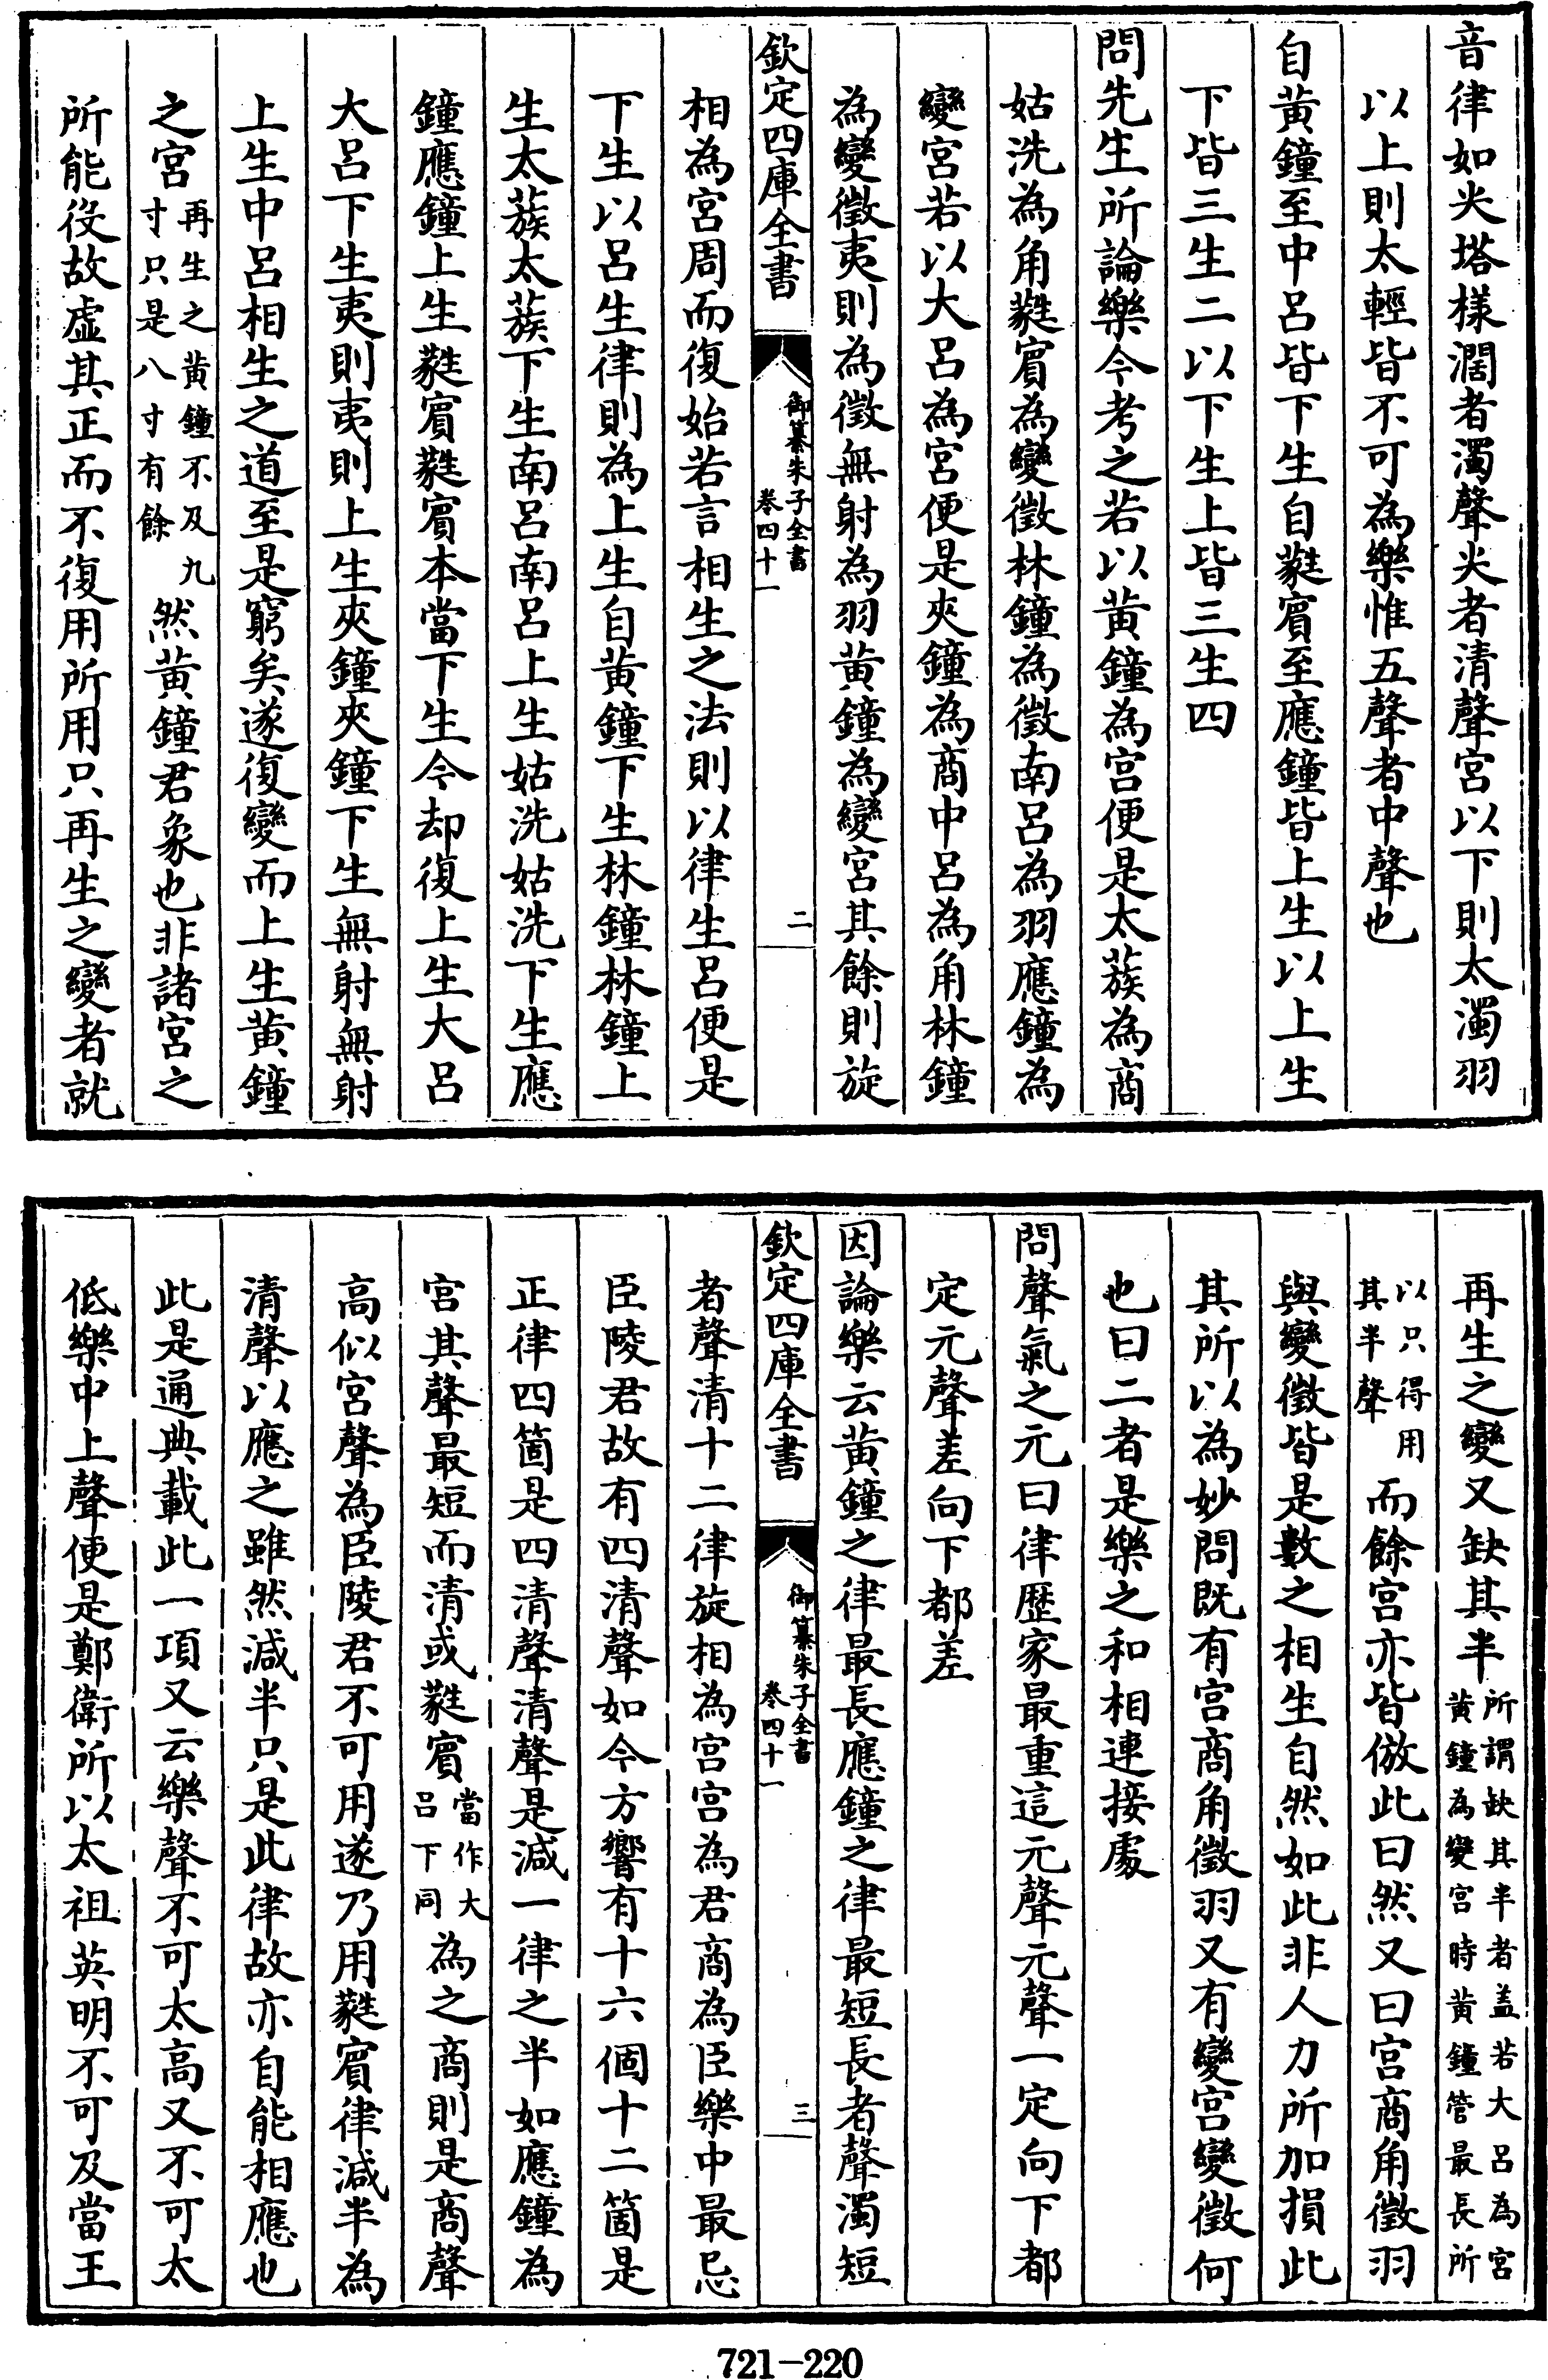 音律如尖塔樣濶者濁聲尖者清聲宫以下則太濁羽
以上則太輕皆不可為樂惟五聲者中聲也
自黄鐘至中呂皆下生自蕤賓至應鐘皆上生以上生
下皆三生二以下生上皆三生四
問先生所論樂今考之若以黄鐘為宫便是太蔟為商
姑洗為角蕤賓為變徵林鐘為徵南呂為羽應鐘為
變宫若以大呂為宫便是夾鐘為商中呂為角林鐘
為變徵夷則為徵無射為羽黄鐘為變宫其餘則旋
欽定四庫全書
御纂朱子全書
卷四十一
二
相為宫周而復始若言相生之法則以律生呂便是
下生以呂生律則為上生自黄鐘下生林鐘林鐘上
生太蔟太蔟下生南呂南呂上生姑洗姑洗下生應
鐘應鐘上生蕤賓蕤賓本當下生今却復上生大呂
大呂下生夷則夷則上生夾鐘夾鐘下生無射無射
上生中呂相生之道至是窮矣遂復變而上生黄鐘
之宫再生之黄鐘不及九寸只是八寸有餘然黄鐘君象也非諸宫之
所能役故虛其正而不復用所用只再生之變者就
再生之變又缺其半所謂缺其半者盖若大呂為宫黄鐘為變宫時黄鐘管最長所
以只得用其半聲而餘宫亦皆倣此曰然又曰宫商角徵羽
與變徵皆是數之相生自然如此非人力所加損此
其所以為妙問既有宫商角徵羽又有變宫變徵何
也曰二者是樂之和相連接處
問聲氣之元曰律歷家最重這元聲元聲一定向下都
定元聲差向下都差
因論樂云黄鐘之律最長應鐘之律最短長者聲濁短
欽定四庫全書
御纂朱子全書
卷四十一
三
者聲清十二律旋相為宫宫為君商為臣樂中最忌
臣陵君故有四清聲如今方響有十六個十二箇是
正律四箇是四清聲清聲是減一律之半如應鐘為
宫其聲最短而清或蕤賓當作大呂下同為之商則是商聲
高似宫聲為臣陵君不可用遂乃用蕤賓律減半為
清聲以應之雖然減半只是此律故亦自能相應也
此是通典載此一項又云樂聲不可太高又不可太
低樂中上聲便是鄭衛所以太祖英明不可及當王
721-220